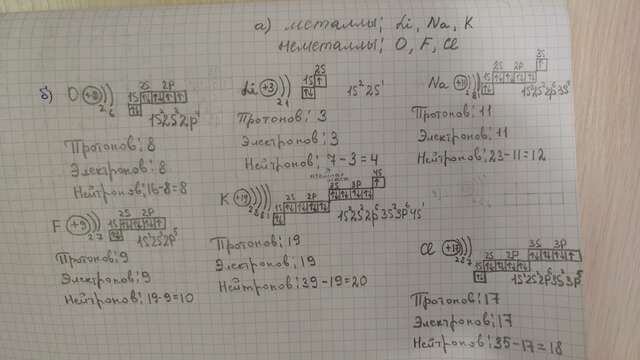 а) металлы: Li, Na, K
неметаллы: O, F, Cl
б) O +8 2 6 1S 2S 2P 1S²2S²2P⁴
Протонов: 8
Электронов: 8
Нейтронов: 16-8=8
Li +3 2 1 1S 2S 1S²2S¹
Протонов: 3
Электронов: 3
Нейтронов: 7-3=4
Na +11 2 8 1 1S 2S 2P 3S 1S²2S²2P⁶3S¹
Протонов: 11
Электронов: 11
Нейтронов: 23-11=12
F +9 2 7 1S 2S 2P 1S²2S²2P⁵
Протонов: 9
Электронов: 9
Нейтронов: 19-9=10
K +19 2 8 8 1 1S 2S 2P 3S 3P 4S 1S²2S²2P⁶3S²3P⁶4S¹
Протонов: 19
Электронов: 19
Нейтронов: 39-19=20
Cl +17 2 8 7 1S 2S 2P 3S 3P 1S²2S²2P⁶3S²3P⁵
Протонов: 17
Электронов: 17
Нейтронов: 35-17=18